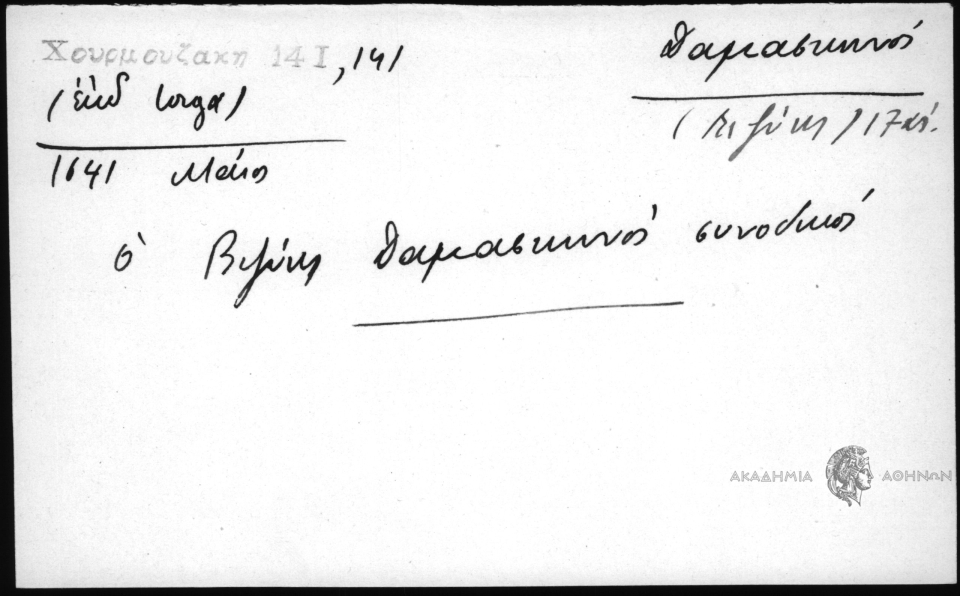 Χουρμουζακη 14 I, 141
(ἐκδ Iorga)
1641 Μάιος
Δαμασκηνός
(Βιζύης) 17 αἰ.
ὁ Βιζύης Δαμασκηνός συνοδικός
ΑΚΑΔΗΜΙΑ ΑΘΗΝΩΝ